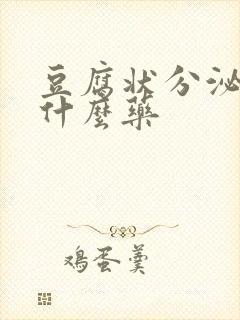 豆腐状分泌
什麼药
鸡蛋羹